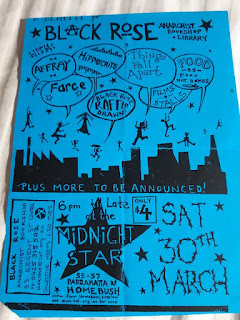 BLACK ROSE
ANARCHIST
BOOKSHOP
+ LIBRARY
WITH:
AFFRAY
HIPPOCRITS
Things
Fall
Apart
FOOD
NOT BOMBS
Farce
BLACK ROSE
RAFFLE
DRAWN!
FILMS
STALLS
PLUS MORE TO BE ANNOUNCED!
6pm
Late
at the
MIDNIGHT
STAR
55-57
PARRAMATTA RD
HOMEBUSH
ONLY
$4
SAT
30TH
MARCH
BLACK ROSE
ANARCHIST BOOKSHOP